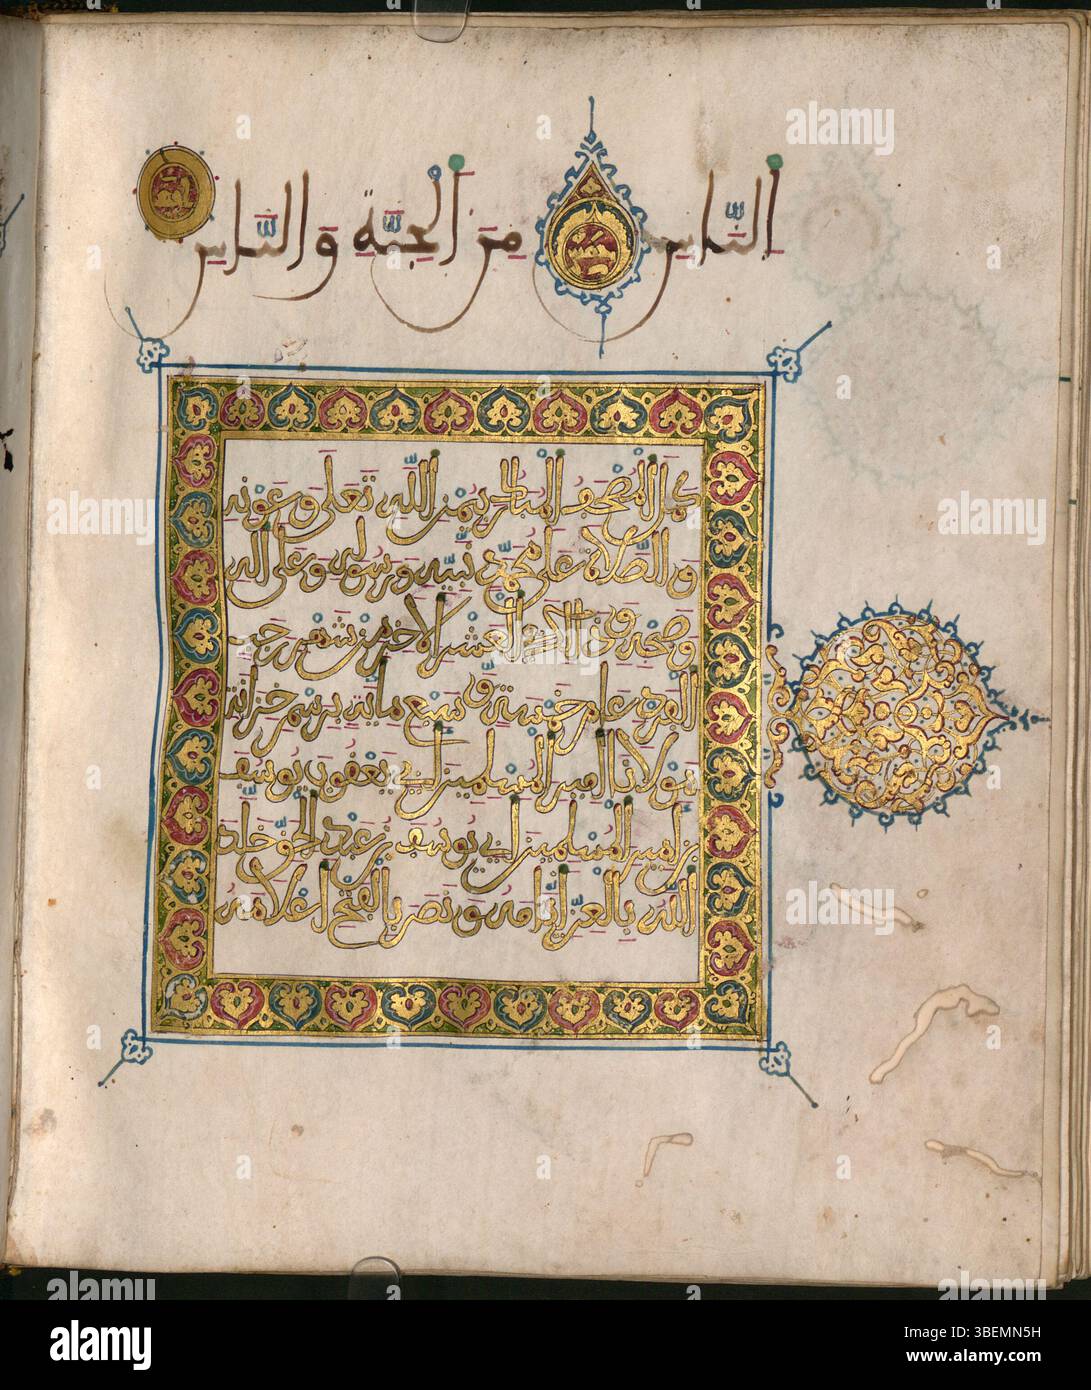 الناس من الجنة والناس
كمل المصحف المبارك بمن الله تعلى وعونه
والصلاة على محمد نبيه ورسوله وعلى اله
وصحبه وذلك في العشر الاخر من شهر رجب
الفرد عام خمسة وسبع مائة برسم خزانة
مولانا امير المسلمين ابي يعقوب يوسف
بن امير المسلمين ابي يوسف بن عبد الحق خلد
الله بالعز ايامه ونصر بالفتح اعلامه
alamy
Image ID: 3BEMN5H
www.alamy.com